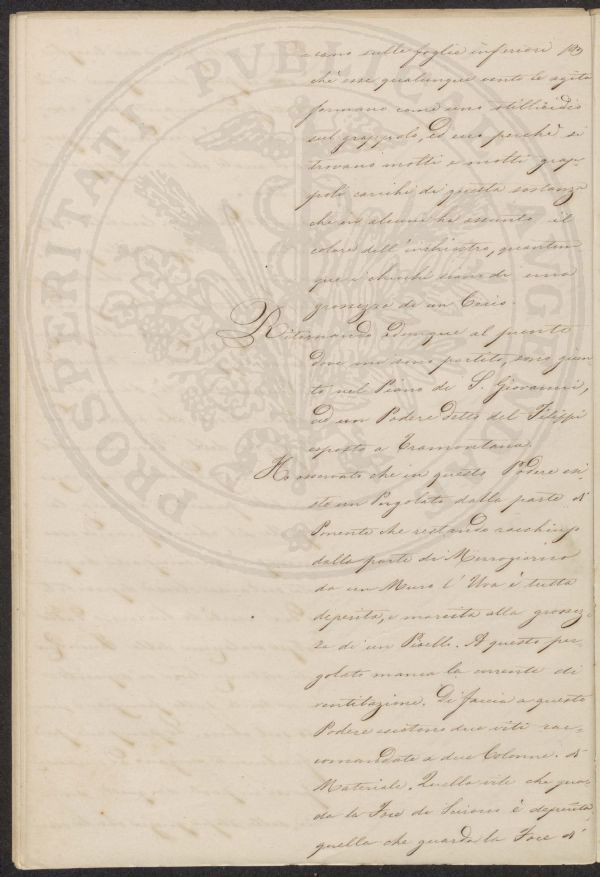 cano sulle foglie inferiori per
chè esse qualunque vento le agita
formano come uno stillicidio
sul grappolo, ed ecco perchè si
trovano molti e molti grap-
poli carichi di questa sostanza
che in alcuni ha assunto il
colore dell'inchiostro, quantun
que i chicchi siano di una
grossezza di un Cecio.
Ritornando adunque al punto
dove mi sono partito, sono giun
to nel Piano di S. Giovanni,
ad un Podere detto del Filippi
esposto a Tramontana.
Ho osservato che in questo Podere esi
ste un Pergolato dalla parte di
Ponente che restando racchiuso
dalla parte di Mezzogiorno
da un Muro l'Uva è tutta
deperita, e moresta alla grossez
za di un Pisello. A questo per-
golato manca la corrente di
ventilazione. Di faccia a questo
Podere esistono due viti rac-
comandate a due Colonne di
Materiale. Quella vite che guar
da la Foce di è deperita
quella che guarda la Foce di
PROSPERITATI PUBLICAE AUGENDAE